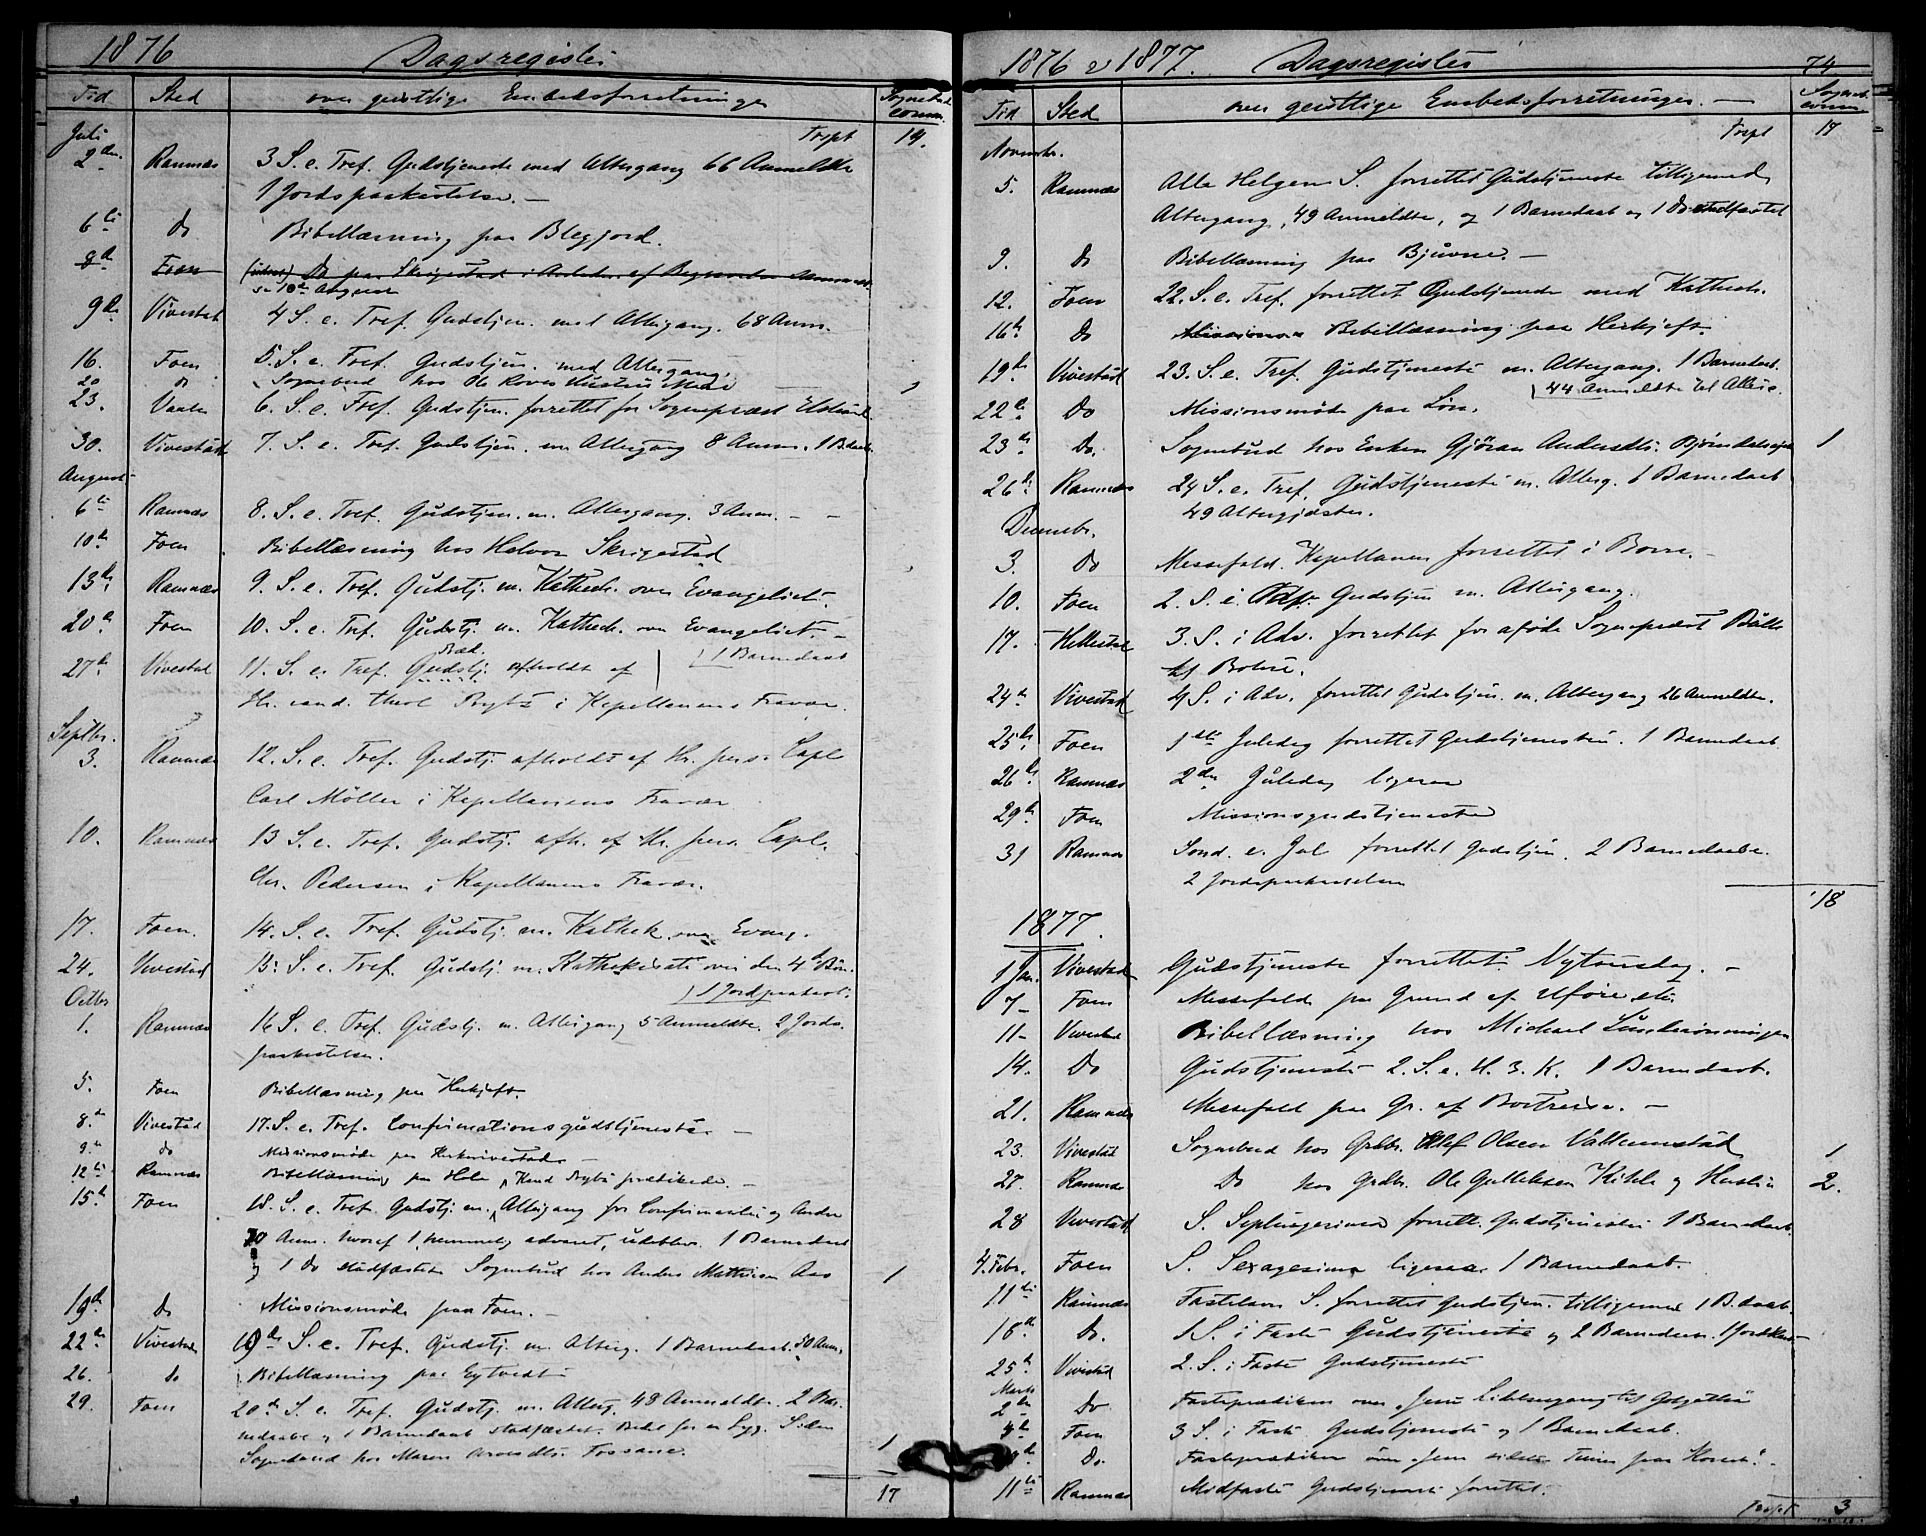 1876 Dagsregister
Tid Sted over geistlige Embedsforretninger Sognebud comm.
Juli Trspt 14.
2den Ramnæs 3 S. e. Tref. Gudstjeneste med Altergang 66 Anmeldte
1 Jordspaakastelse. —
6te Do Bibellæsning paa Blegjord.
8de Foen Do paa Skrigestad
se 10de August
9de Vivestad 4 S. e. Tref. Gudstjen. med Altergang. 68 Anm.
16. Foen 5. S. e. Tref. Gudstjen. med Altergang.
20 do Sognebud hos 1
23. Vaale 6. S. e. Tref. Gudstjen. forrettet for Sognepræst
30. Vivestad 7. S. e. Tref. Gudstjen. m. Altergang 8 Anm. 1 B.daab
August
6te Ramnæs 8. S. e. Tref. Gudstjen. m. Altergang. 3 Anm. — —
10de Foen Bibellæsning hos Halvor Skrigestad
13de Ramnæs 9. S. e. Tref. Gudstj. m. Kathech. over Evangeliet.
20de Foen 10. S. e. Tref. Gudstj. m. Kathech. over Evangeliet. —
1 Barnedaab
27de Vivestad 11. S. e. Tref. Gudstj. afholdt af
Hr. cand. theol. i Kapellanens Fravær.
Septbr.
3. Ramnæs 12. S. e. Tref. Gudstj. afholdt af Hr. pers. Capl.
Carl Möller i Kapellanens Fravær
10. Ramnæs 13 S. e. Tref. Gudstj. afh. af Hr. pers. Capl.
Chr. Pedersen i Kapellanens Fravær.
17. Foen. 14. S. e. Tref. Gudstj. m. Kathek. over Evang.
24. Vivestad 15. S. e. Tref. Gudstj. m. Kathekisats over den 4de Bön.
1 Jordpaakast.
Octbr
1. Ramnæs 16 S. e. Tref. Gudstj. m. Altergang 5 Anmeldte. 2 Jords-
paakastelser.
5. Foen Bibellæsning paa Herkjeft.
8de Vivestad 17. S. e. Tref. Confirmationsgudstjeneste —
9de do Missionsmöde paa —
12te Ramnæs Bibellæsning paa prædikede. —
15de Foen 18. S. e. Tref. Gudstj. m. Altergang for Confirmanter og Andre
70 Anm. hvoraf 1, advaret, udeblev. 1 Barnedaab
og 1 Do stadfæstet Sognebud hos Anders Mathisen Aas 1
19de Do Missionsmöde paa Foen. —
22de Vivestad 19de S. e. Tref. Gudstj. m. Alterg. 1 Barnedaab. 30 Anm.
26. do Bibellæsning paa
29. Foen 20de S. e. Tref. Gudstj. m. Alterg. 48 Anmeldte. 2 Bar-
nedaabe og 1 Barnedaab stadfæstet. Bedet for en Syg. Siden
Sognebud hos Maren Fossane. 1
17
1876 & 1877. Dagsregister 74
Tid Sted over geistlige Embedsforretninger. — Sogneb. comm.
Trspt 17
Novembr.
5. Ramnæs Alle Helgens S. forrettet Gudstjeneste tilligemed
Altergang, 49 Anmeldte, og 1 Barnedaab og 1 Do stadfæstet
9. Do Bibellæsning paa Bjuvne. —
12. Foen 22. S. e. Tref. forrettet Gudstjeneste med Kathech.
16de Do Bibellæsning paa Herkjeft.
19de Vivestad 23. S. e. Tref. Gudstjeneste m. Altergang. 1 Barnedaab.
44 Anmeldte til Alters.
22de Do Missionsmöde paa
23de Do. Sognebud hos Enken Gjöran Andersdtr. 1
26de Ramnæs 24 S. e. Tref. Gudstjeneste m. Alterg. 1 Barnedaab
49 Altergjæster.
Decembr.
3. Do Messefald. Kapellanen forrettet i Borre. —
10. Foen 2. S. i Adv. Gudstjen m. Altergang.
17. Hillestad 3. S. i Adv. forrettet for aföde Sognepræst
af Botne.
24de Vivestad 4 S. i Adv. forrettet Gudstjen. m. Altergang 26 Anmeldte.
25de Foen 1ste Juledag forrettet Gudstjenesten. 1 Barnedaab.
26de Ramnæs 2den Juledag ligesaa
29de Foen Missionsgudstjeneste
31 Ramnæs Sönd. e. Jul forrettet Gudstjen. 2 Barnedaabe.
2 Jordspaakastelser
18
1877.
1 Jan. Vivestad Gudstjeneste forrettet Nytaarsdag. —
7 — Foen Messefald paa Grund af Uföre etc.
11 — Vivestad Bibellæsning hos Michael
14. Do Gudstjeneste 2. S. e. H. 3. K. 1 Barnedaab.
21. Ramnæs Messefald paa Gr. af Bortreise. —
23. Vivestad Sognebud hos Grdbr. Olef Olsen Vallumstad 1
27. Ramnæs Do hos Grdbr. Ole Gulliksen Kihle og Hustru 2.
28 Vivestad S. Septuagesima forrett. Gudstjenesten 1 Barnedaab.
4. Febr. Foen S. Sexagesima ligesaa. 1 Barnedaab.
11te Ramnæs Fastelavns S. forrettet Gudstjen. tilligemed 1 B.daab.
18de Do. 1 S. i Faste Gudstjeneste og 2 Barnedaab.
25de Vivestad 2. S. i Faste Gudstjeneste
Marts
2den Do Fasteprædiken over "Jesu til Golgatha
4de Foen 3 S. i Faste Gudstjeneste og 1 Barnedaab.
Do. Fasteprædiken over Jesu sidste Timer paa Korset". —
11te Ramnæs Midfaste Gudstjeneste forrettet.
Trspt 3